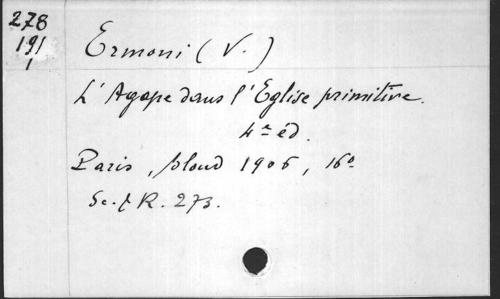 278
191
1
Ermoni (V.)
L'Agape dans l'Eglise primitive.
4e éd.
Paris, Bloud 1906, 16°
Sc. & R. 273.